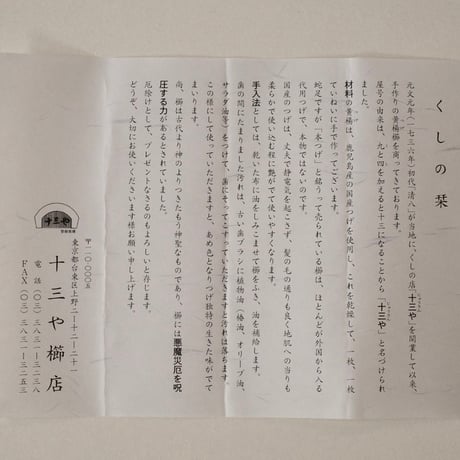 くしの栞
元文元年（一七三六年）初代「清八」が当地に、くしの店「十三や」を開業して以来、
手作りの黄楊櫛を商ってきております。
屋号の由来は、九と四を加えると十三になることから「十三や」と名づけられ
ました。
材料の黄楊は、鹿児島産の国産つげを使用し、これを乾燥して、一枚、一枚
ていねいに手で作ってございます。
蛇足ですが「本つげ」と銘うって売られている櫛は、ほとんどが外国から入る
代用つげで、本物ではないのです。
国産のつげは、丈夫で静電気を起こさず、髪の毛の通りも良く地肌への当りも
柔らかで使い込む程に艶がでて使いやすくなります。
手入法としては、乾いた布に油をしみこませて櫛をふき、油を補給します。
歯の間にたまりました汚れは、古い歯ブラシに植物油（椿油、オリーブ油、
サラダ油等）をつけて、歯にそってこすっていただきますと汚れは落ちます。
この様にして使っていただきますと、あめ色となりつげ独特の生きた味がでて
まいります。
尚、櫛は古代より神のよりつきたもう神聖なものであり、櫛には悪魔災厄を呪
圧する力があるとされていました。
厄除けとして、プレゼントなさるのもよろしいと存じます。
どうぞ、大切にお使いくださいます様お願い申し上げます。
十三や
登録商標
〒一一〇-〇〇〇五
東京都台東区上野二-一二-二一
十三や櫛店
電話（〇三）三八三一-三二三八
FAX（〇三）三八三一-三二五三